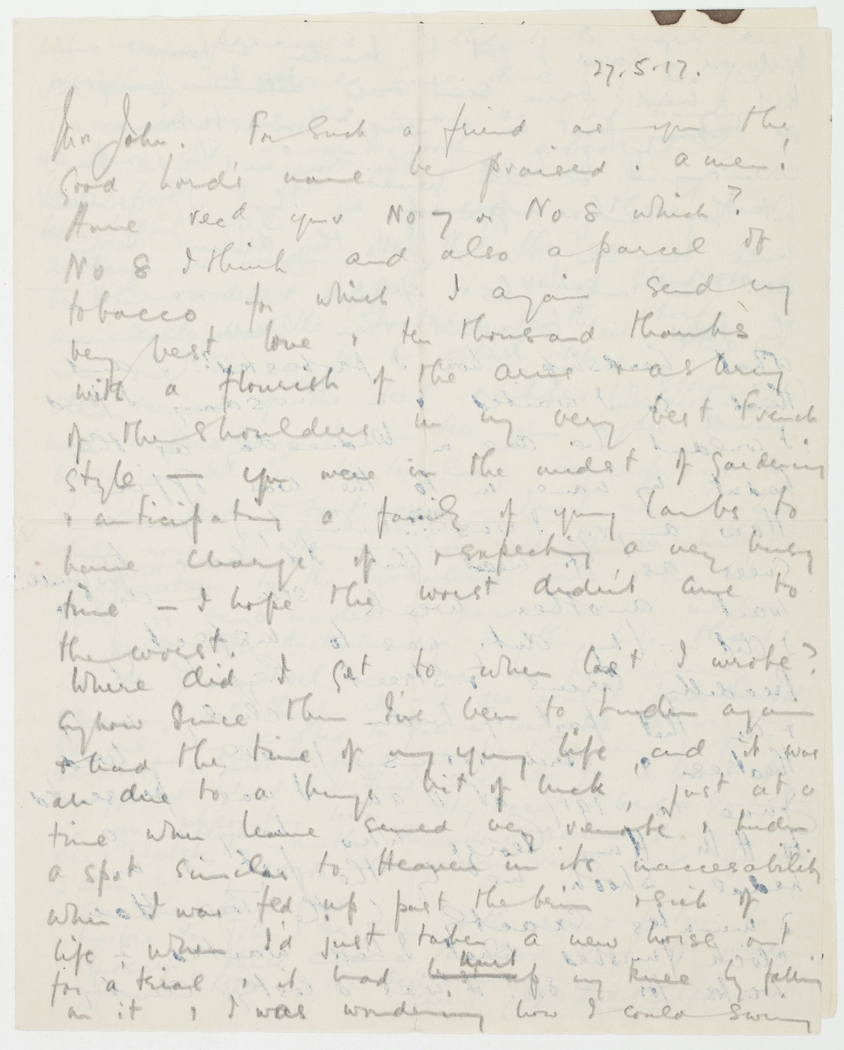 27.5.17.
John. For such a friend as you the
Good Lord's name be praised. amen!
Have recd your No 7 or No 8 which?
No 8 I think and also a parcel of
tobacco for which I again send my
very best love & ten thousand thanks
with a flourish of the arms & a shrug
of the shoulders in my very best French
style — you were in the midst of gardening
& anticipating a family of young lambs to
have charge of & expecting a very busy
time — I hope the worst didn't come to
the worst.
Where did I get to when last I wrote?
Anyhow since then I've been to London again
& had the time of my young life, and it was
all due to a huge bit of luck, just at a
time when leave seemed very remote & London
a spot similar to Heaven in its inaccesability
when I was fed up past the brim & sick of
life, when I'd just taken a new horse out
for a trial, & it had hurt my knee by falling
on it, & I was wondering how I could swing